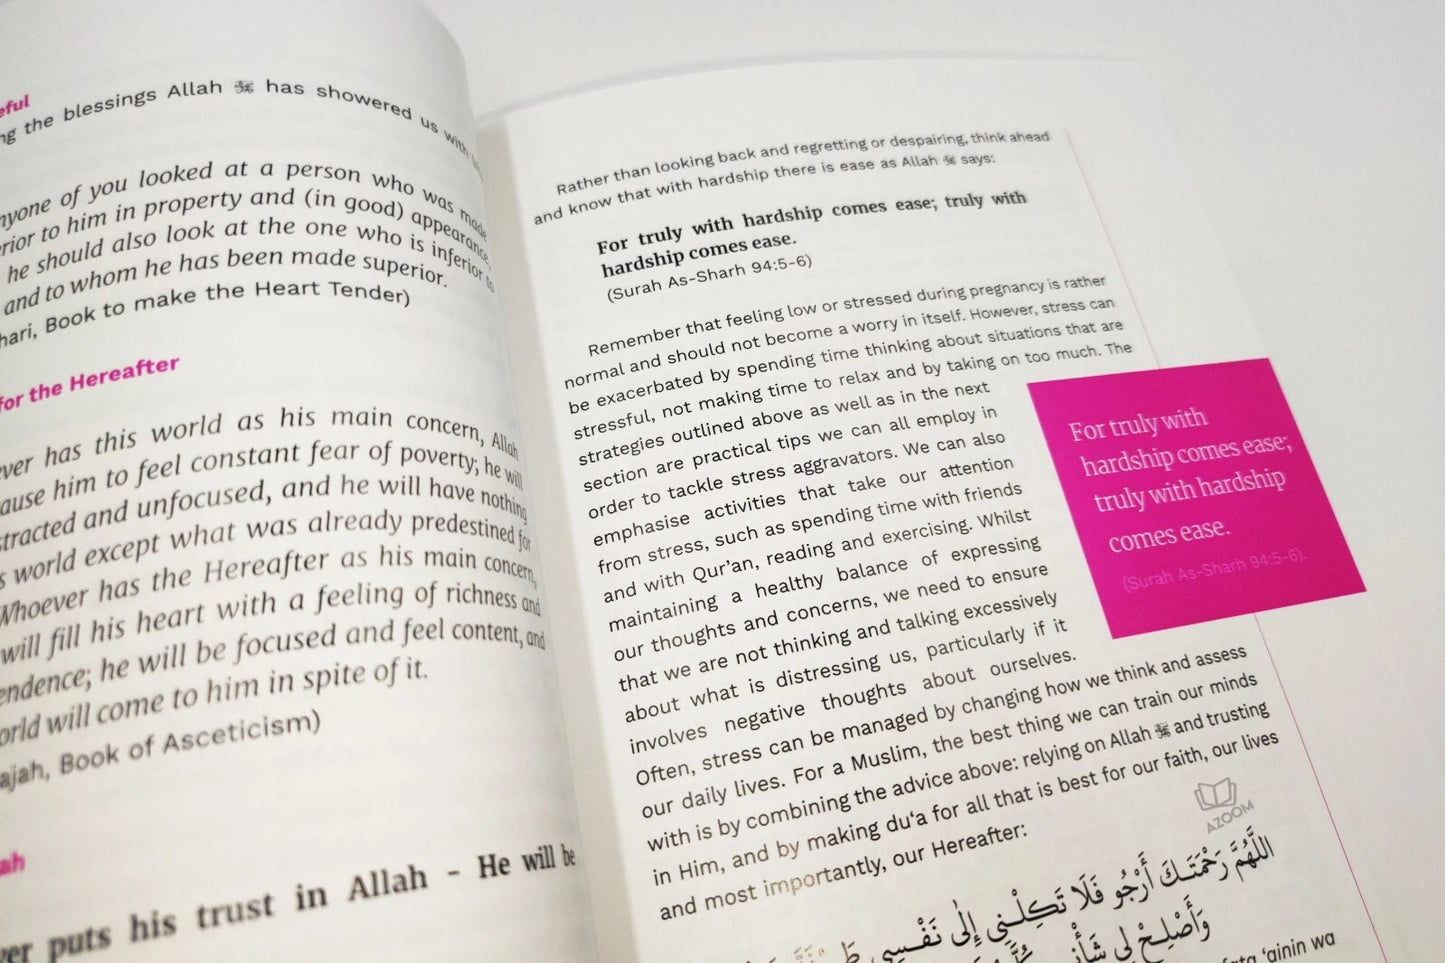 eful
ng the blessings Allah ﷻ has showered us with
nyone of you looked at a person who was made
rior to him in property and (in good) appearance,
he should also look at the one who is inferior to
and to whom he has been made superior.
hari, Book to make the Heart Tender)
for the Hereafter
ever has this world as his main concern, Allah
ause him to feel constant fear of poverty; he will
stracted and unfocused, and he will have nothing
s world except what was already predestined for
Whoever has the Hereafter as his main concern,
will fill his heart with a feeling of richness and
endence; he will be focused and feel content, and
orld will come to him in spite of it.
ajah, Book of Asceticism)
ah
ver puts his trust in Allah - He will be
Rather than looking back and regretting or despairing, think ahead
and know that with hardship there is ease as Allah ﷻ says:
For truly with hardship comes ease; truly with
hardship comes ease.
(Surah As-Sharh 94:5-6)
Remember that feeling low or stressed during pregnancy is rather
normal and should not become a worry in itself. However, stress can
be exacerbated by spending time thinking about situations that are
stressful, not making time to relax and by taking on too much. The
strategies outlined above as well as in the next
section are practical tips we can all employ in
order to tackle stress aggravators. We can also
emphasise activities that take our attention
from stress, such as spending time with friends
and with Qur'an, reading and exercising. Whilst
maintaining a healthy balance of expressing
our thoughts and concerns, we need to ensure
that we are not thinking and talking excessively
about what is distressing us, particularly if it
involves negative thoughts about ourselves.
Often, stress can be managed by changing how we think and assess
our daily lives. For a Muslim, the best thing we can train our minds
with is by combining the advice above: relying on Allah ﷻ and trusting
in Him, and by making du'a for all that is best for our faith, our lives
and most importantly, our Hereafter:
For truly with
hardship comes ease;
truly with hardship
comes ease.
(Surah As-Sharh 94:5-6).
AZOOM
اللَّهُمَّ رَحْمَتَكَ أَرْجُو فَلَا تَكِلْنِي إِلَى نَفْسِي
وَأَصْلِحْ لِي شَأْنِي
'ainin wa